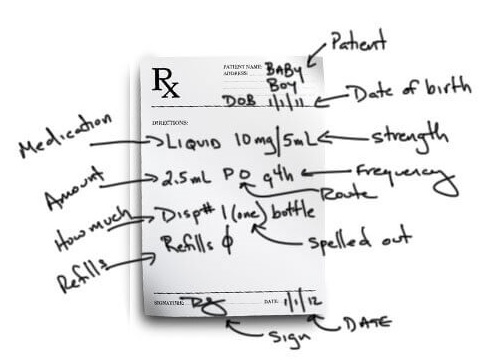 Patient
Rx
PATIENT NAME: BABY
ADDRESS: BOY
DOB 1/1/11
Date of birth
DIRECTIONS:
Medication
LIQUID 10mg/5mL
strength
Amount
2.5mL PO q4h
Frequency
Route
How much
Disp# 1 (one) bottle
Spelled out
Refills
Refills ϕ
SIGNATURE:
DATE: 1/1/12
Sign
DATE